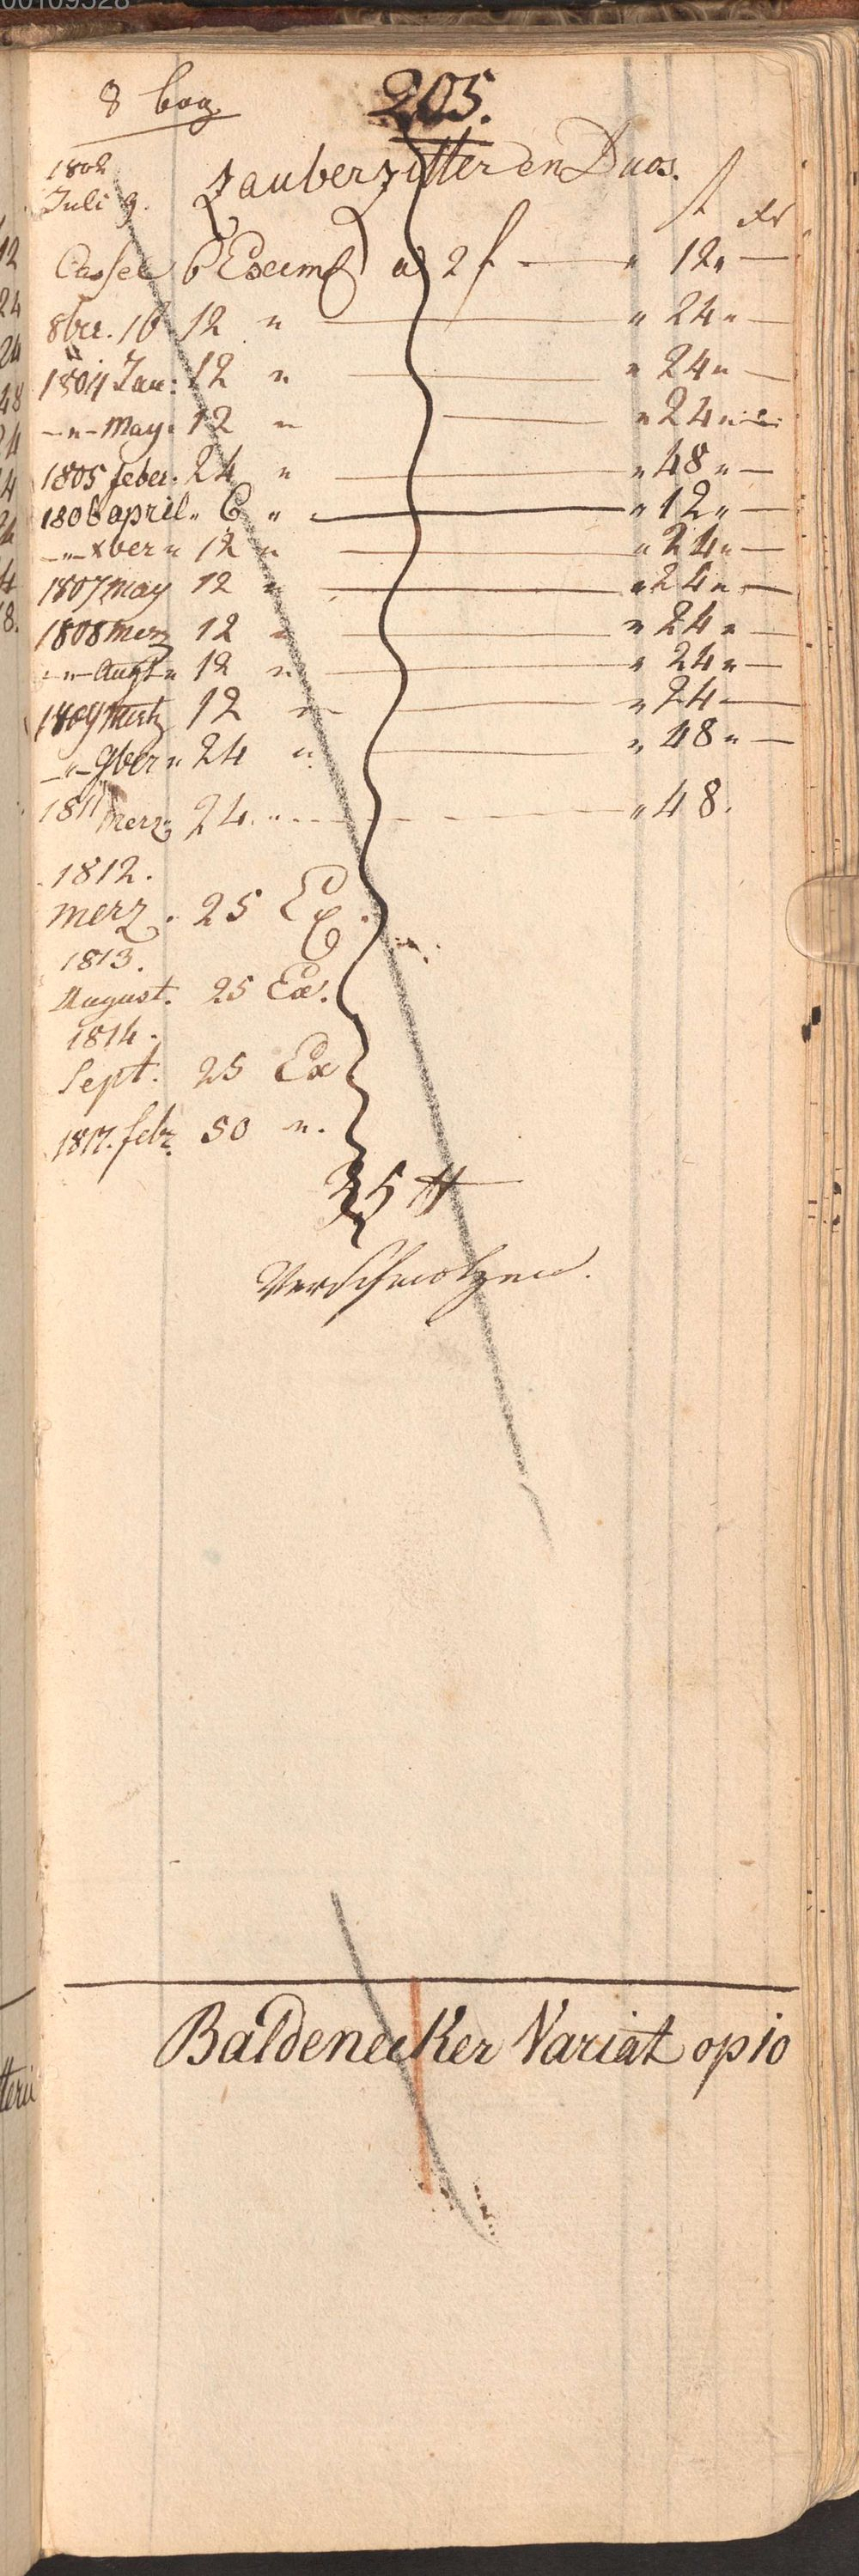 8 bog
205.
1802
Juli 9. Zauberzitter en Duos.
f Xr
Cassel 6 Exempl a 2 f — " 12 " —
8ber. 16 12 " — " 24 " —
1804 Jan: 12 " — " 24 " —
— " — May. 12 " — " 24 " —
1805 feber. 24 " — " 48 " —
1806 april " 6 " — " 12 " —
— " — Xber " 12 " — " 24 " —
1807 May 12 " — " 24 " —
1808 Merz 12 " — " 24 " —
— " — Augt " 12 " — " 24 " —
1809 Mertz 12 " — " 24 —
— " — 9ber " 24 " — " 48 " —
1811 Merz 24 " — " 48.
1812.
Merz. 25 Ex.
1813.
August. 25 Ex.
1814.
Sept. 25 Ex
1817. febr. 50 ".
35 ℔
Verschmolzen.
Baldenecker Variat op 10